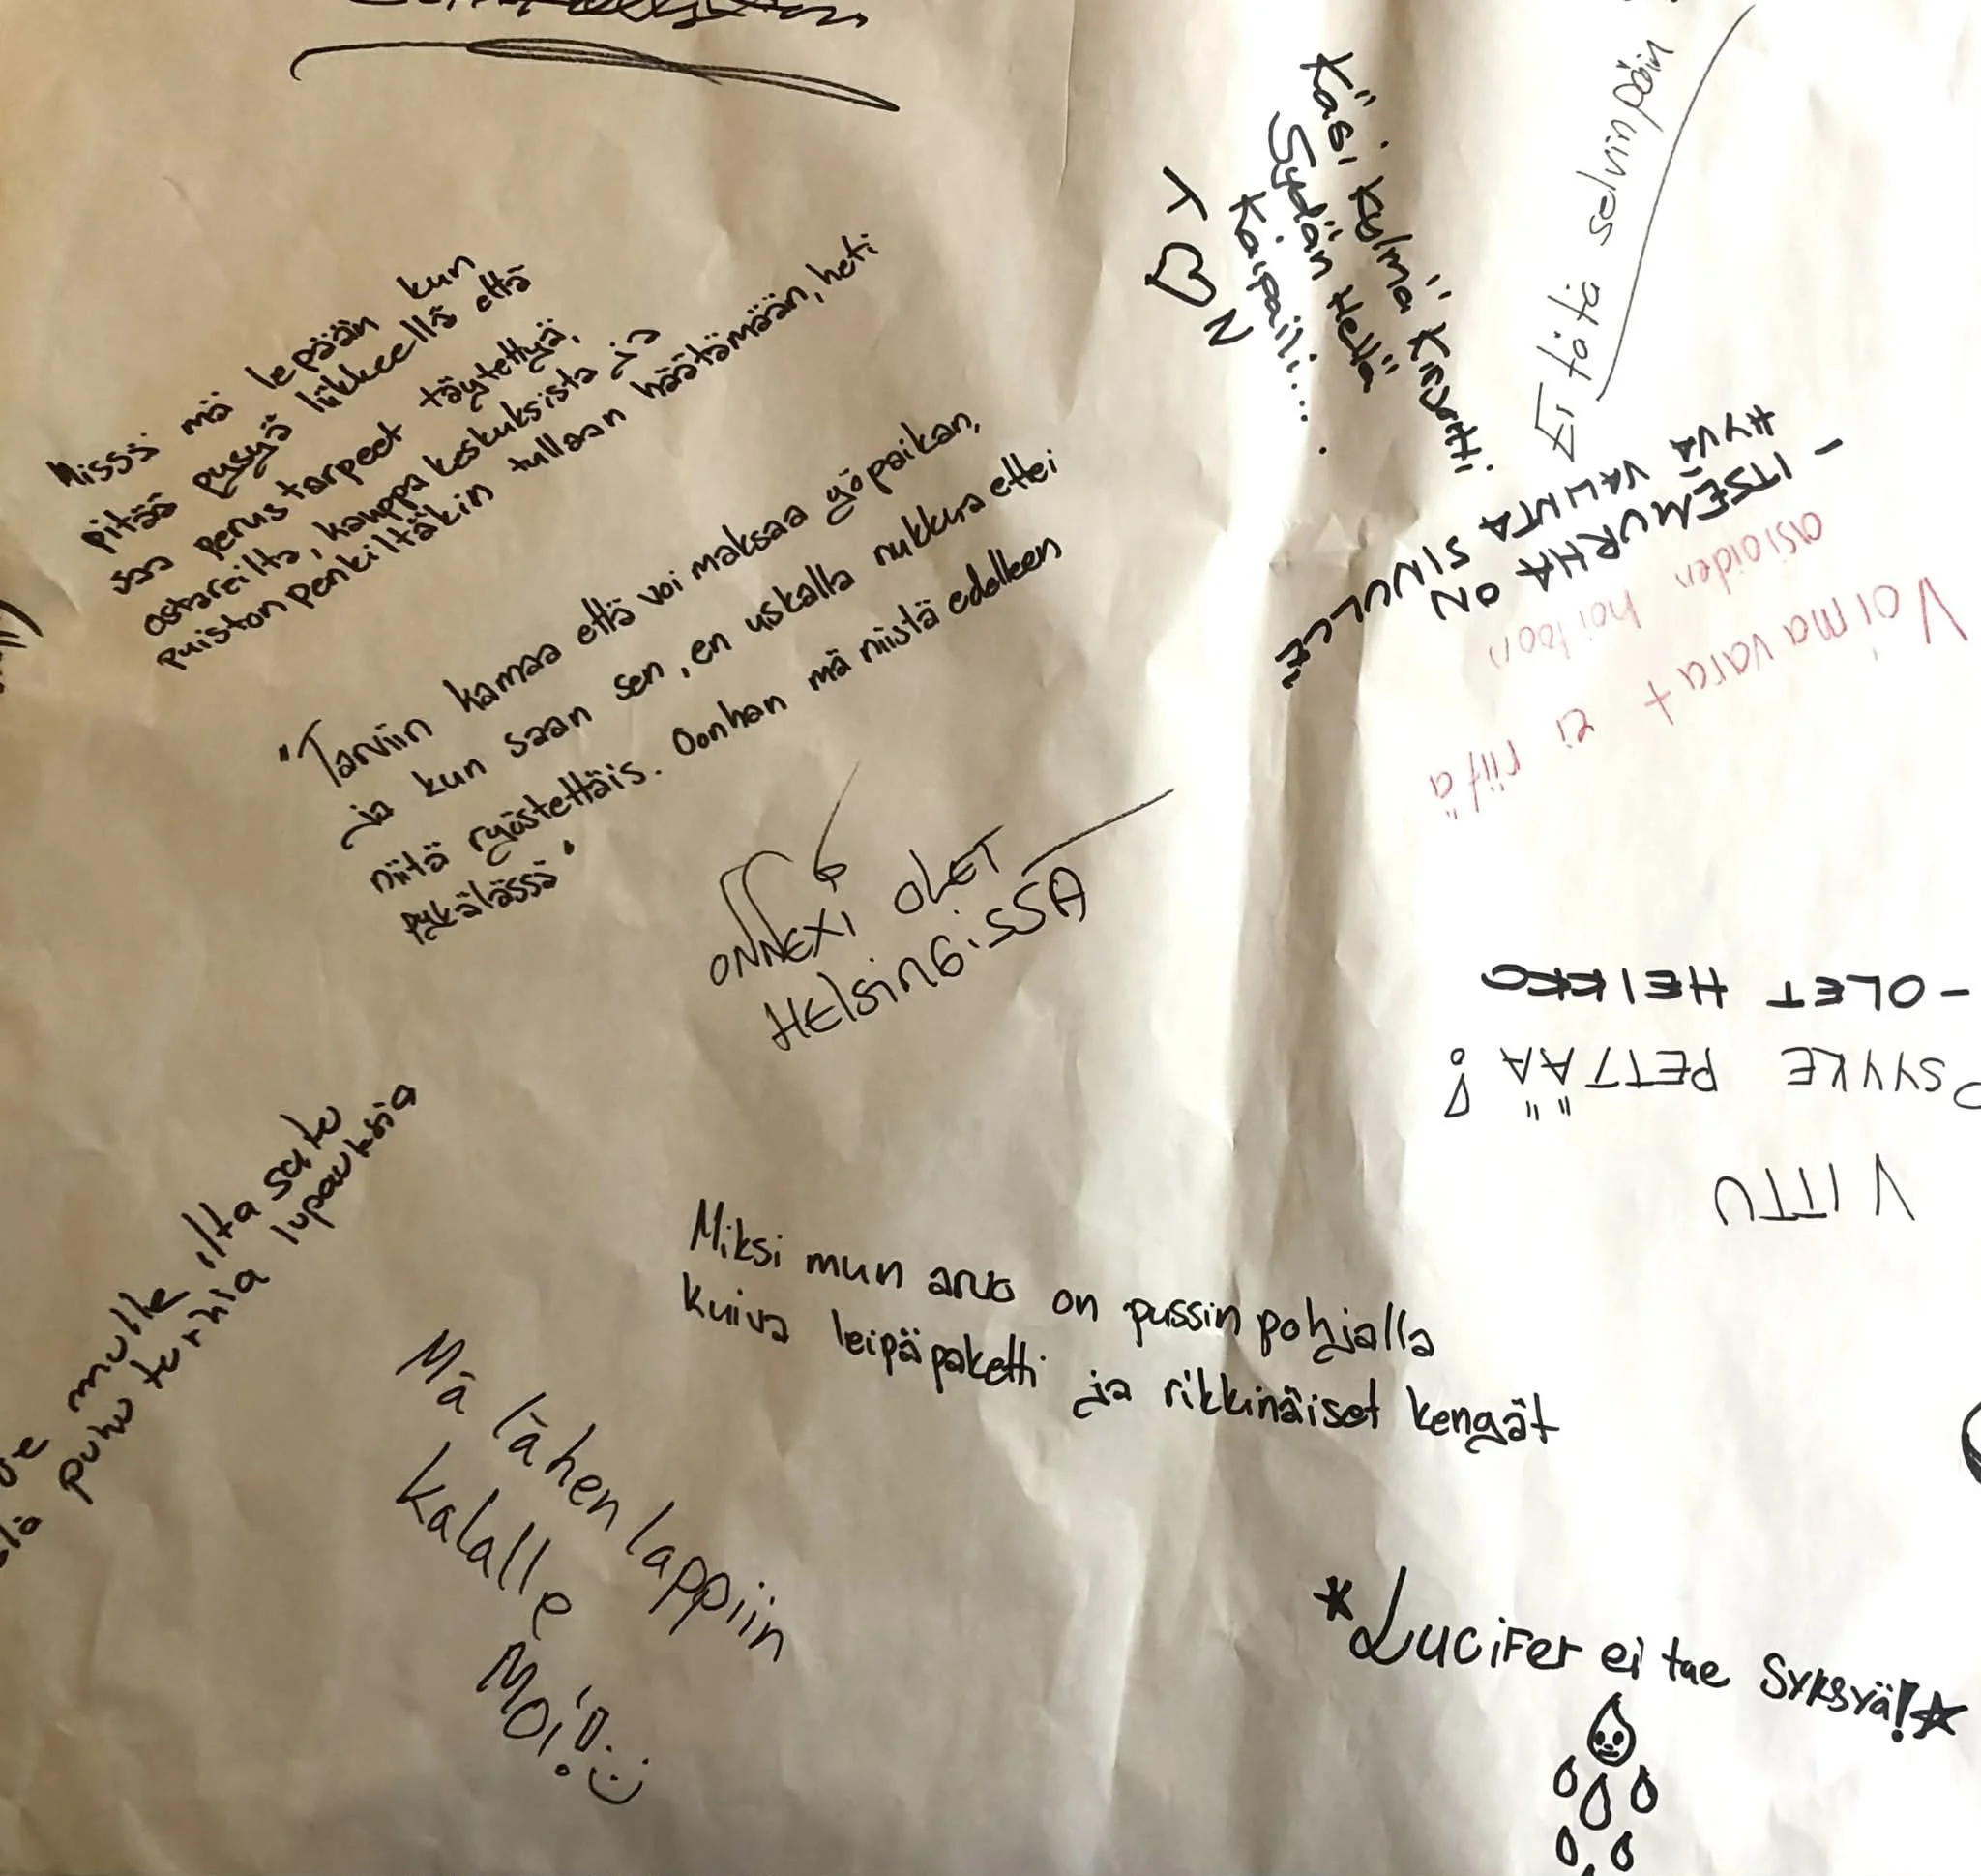 Missä mä lepään kun
pitää pysyä liikkeellä että
saa perustarpeet täytettyä,
ostareilta, kauppakeskuksista ja
puistonpenkiltäkin tullaan häätämään, heti
"Tarviin kamaa että voi maksaa yöpaikan,
ja kun saan sen, en uskalla nukkua ettei
niitä ryöstettäis. Oonhan mä niistä edelleen
pykälässä"
ONNEXI OLET
HELSINGISSÄ
Käsi kylmä Kirvotti
Sydän Hellä
Kaipaili....
Y ♡ N
Ei tätä selvinpäin
- ITSEMURHA ON
HYVÄ VALINTA SINULLE
Voimavarat ei riitä
asioiden hoitoon
VITTU
PSYYKE PETTÄÄ!
- OLET HEIKKO
mulle ilta satu
puhu turhia lupauksia
Miksi mun arvo on pussin pohjalla
kuiva leipäpaketti ja rikkinäiset kengät
Mä lähen lappiin
kalalle
Moi! :)
*Lucifer ei tue syksyä!☆